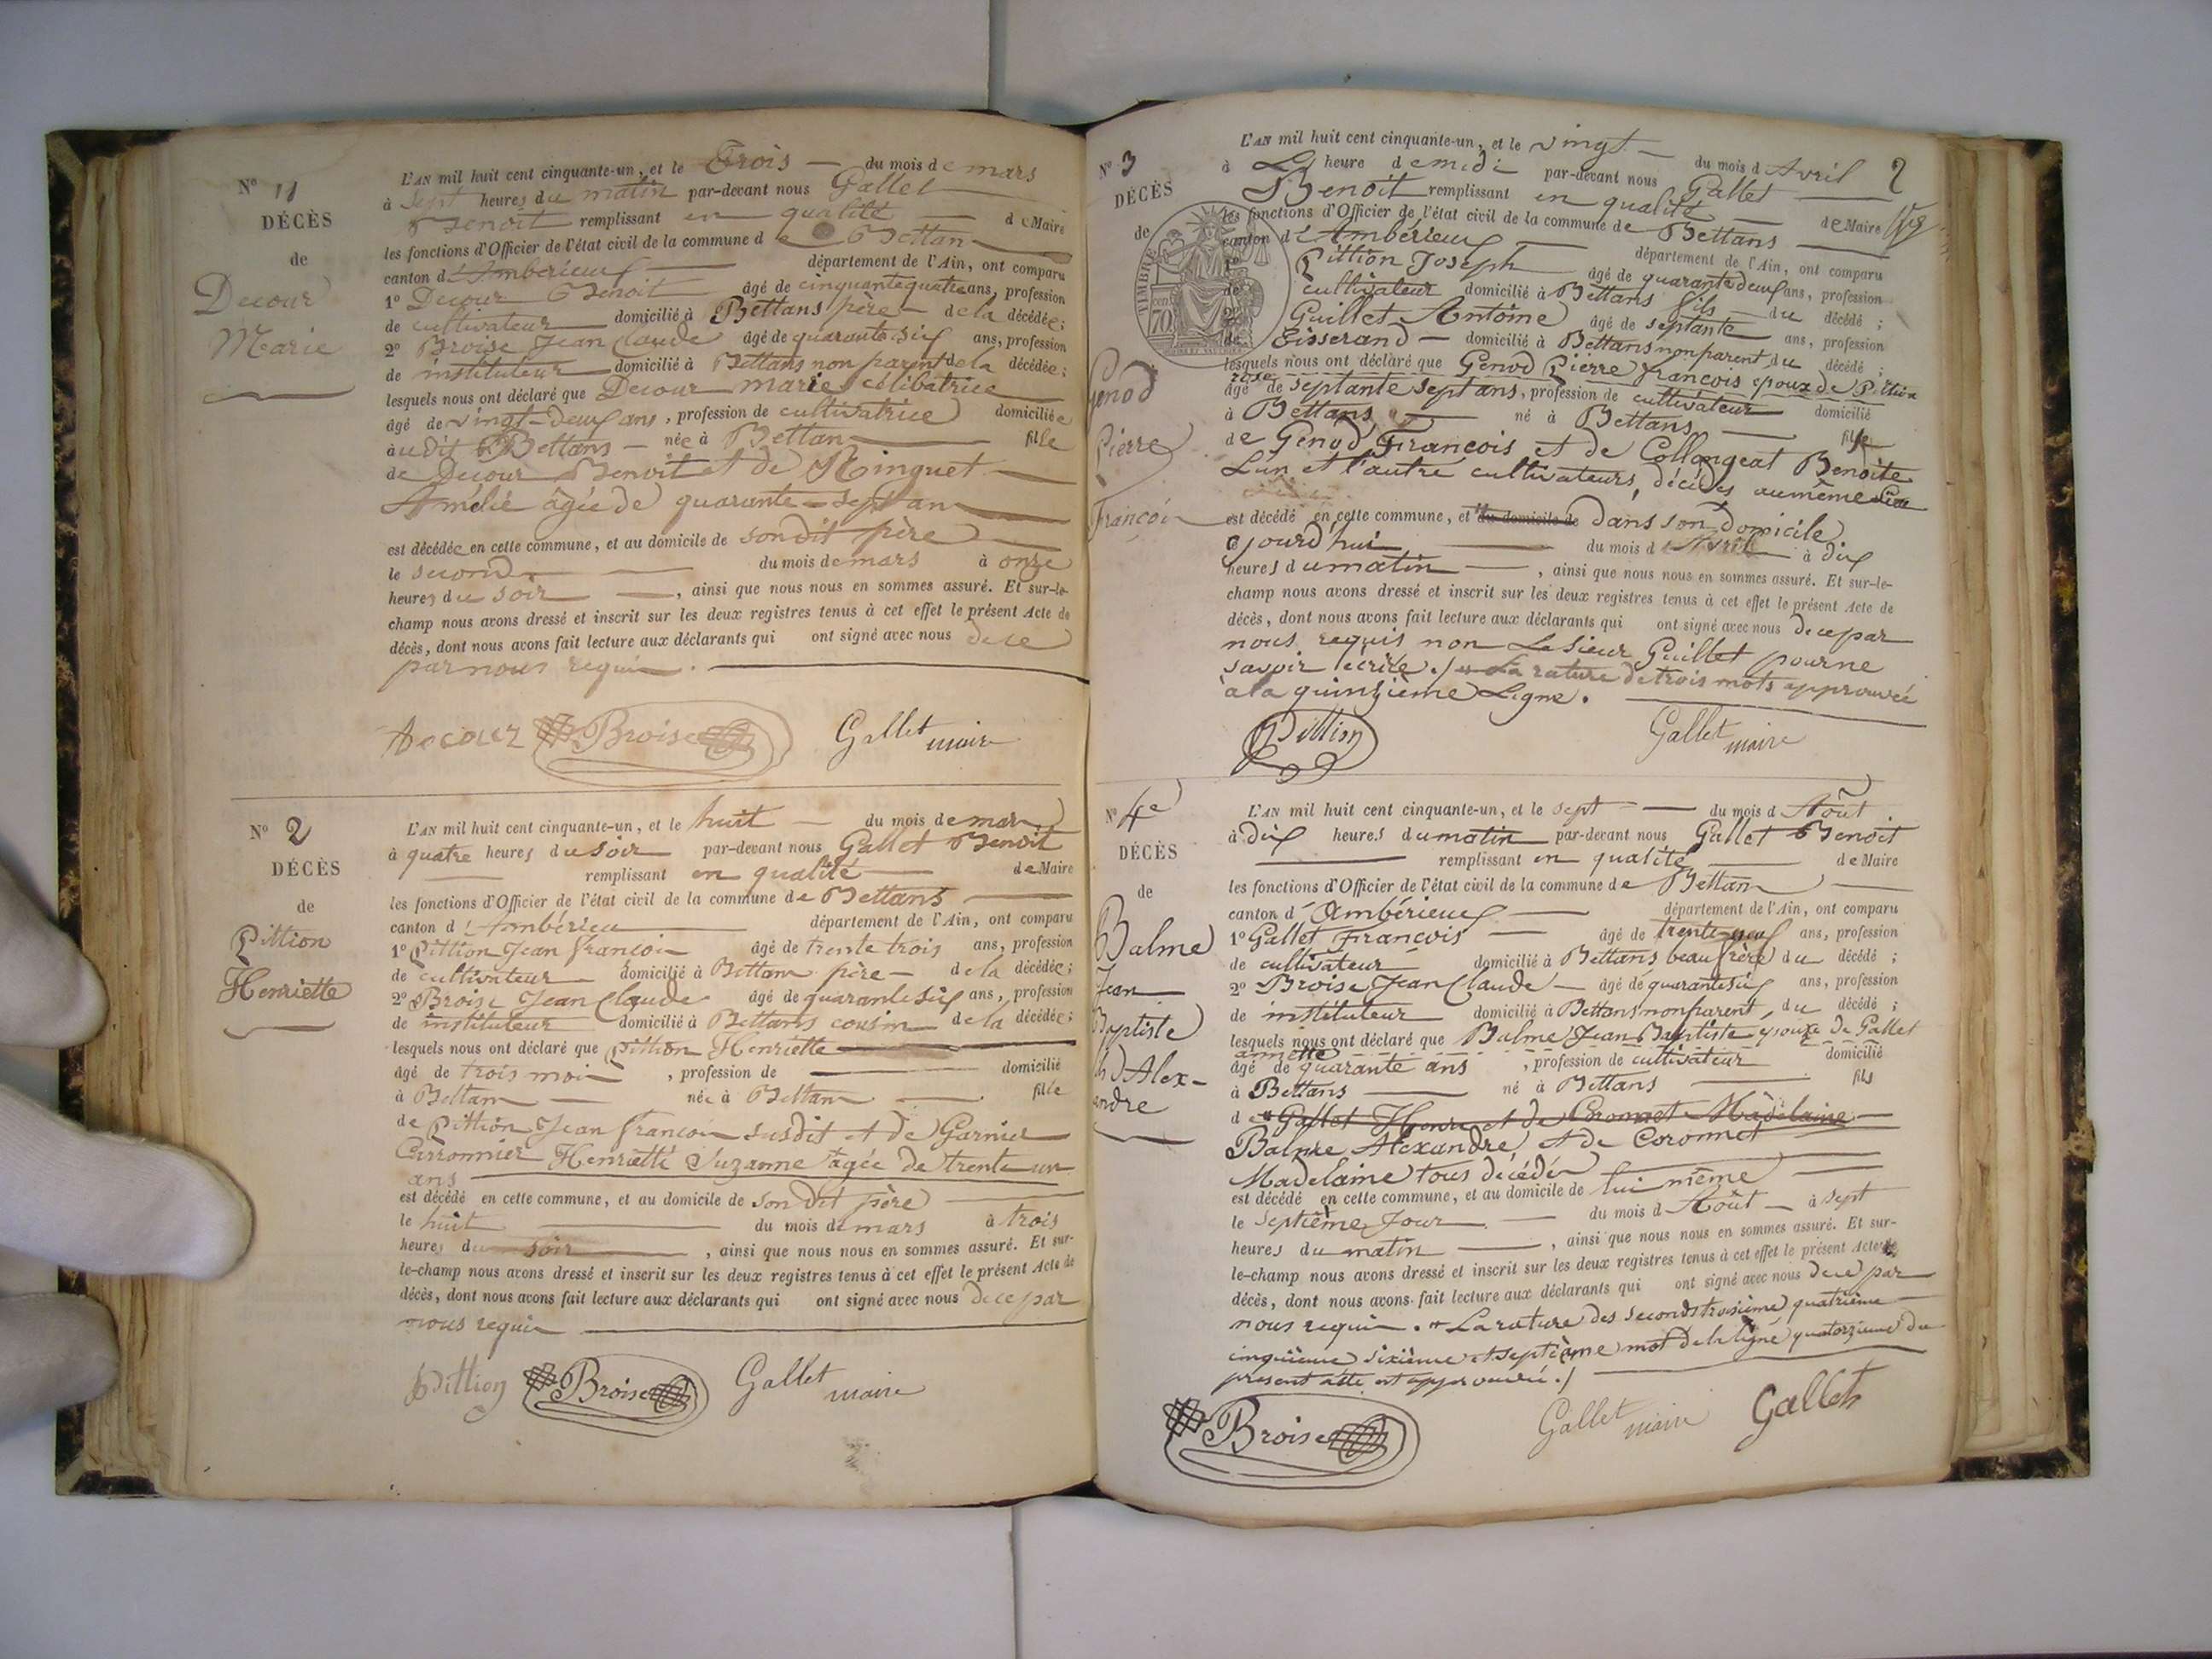 N° 11
DÉCÈS
de
Decour
Marie
L'AN mil huit cent cinquante-un, et le Trois du mois de mars
à sept heures du matin par-devant nous Gallet
Benoit remplissant en qualité de Maire
les fonctions d'Officier de l'état civil de la commune de Bettan
canton d'Ambérieux département de l'Ain, ont comparu
1° Decour Benoit âgé de cinquante quatre ans, profession
de cultivateur domicilié à Bettans père de la décédée;
2° Broise Jean Claude âgé de quarante six ans, profession
de instituteur domicilié à Bettans non parent de la décédée;
lesquels nous ont déclaré que Decour marie célibatrice
âgé de vingt-deux ans, profession de cultivatrice domiciliée
àudit Bettans née à Bettan fille
de Decour Benoit et de Ringuet
Amélie âgée de quarante-sept an
est décédée en cette commune, et au domicile de sondit père
le second du mois de mars à onze
heures du soir, ainsi que nous nous en sommes assuré. Et sur-le-
champ nous avons dressé et inscrit sur les deux registres tenus à cet effet le présent Acte de
décès, dont nous avons fait lecture aux déclarants qui ont signé avec nous de ce
par nous requis.
Decour Broise Gallet maire
N° 2
DÉCÈS
de
Pittion
Henriette
L'AN mil huit cent cinquante-un, et le huit du mois de mars
à quatre heures du soir par-devant nous Gallet Benoit
remplissant en qualité de Maire
les fonctions d'Officier de l'état civil de la commune de Bettans
canton d'Ambérieu département de l'Ain, ont comparu
1° Pittion Jean françois âgé de trente trois ans, profession
de cultivateur domicilié à Bettans père de la décédée;
2° Broise Jean Claude âgé de quarante six ans, profession
de instituteur domicilié à Bettans cousin de la décédée;
lesquels nous ont déclaré que Pittion Henriette
âgé de trois mois, profession de domicilié
à Bettans née à Bettans fille
de Pittion Jean françois susdit et de Garnier
Henriette Suzanne âgée de trente un
ans
est décédé en cette commune, et au domicile de son dit père
le huit du mois de mars à trois
heures du soir, ainsi que nous nous en sommes assuré. Et sur-
le-champ nous avons dressé et inscrit sur les deux registres tenus à cet effet le présent Acte de
décès, dont nous avons fait lecture aux déclarants qui ont signé avec nous de ce par
nous requis
Pittion Broise Gallet maire
2
N° 3
DÉCÈS
de
Genod
Pierre
François
TIMBRE
70
L'AN mil huit cent cinquante-un, et le vingt du mois d'Avril
à L' heure de midi par-devant nous Gallet
Benoit remplissant en qualité de Maire
les fonctions d'Officier de l'état civil de la commune de Bettans
canton d'Ambérieux département de l'Ain, ont comparu
1° Pittion Joseph âgé de quarante deux ans, profession
de cultivateur domicilié à Bettans fils du décédé;
2° Guillet Antoine âgé de septante ans, profession
de Tisserand domicilié à Bettans non parent du décédé;
lesquels nous ont déclaré que Genod Pierre françois époux de Pittion
rose
âgé de septante sept ans, profession de cultivateur domicilié
à Bettans né à Bettans fils
de Genod François et de Collongeat Benoite
Lun et l'autre cultivateurs, décédés au même lieu
est décédé en cette commune, et au domicile de dans son domicile
ajourd'hui du mois d'Avril à dix
heures du matin, ainsi que nous nous en sommes assuré. Et sur-le-
champ nous avons dressé et inscrit sur les deux registres tenus à cet effet le présent Acte de
décès, dont nous avons fait lecture aux déclarants qui ont signé avec nous de ce par
nous requis non Le sieur Guillet pour ne
savoir écrire./ La rature de trois mots approuvée
à la quinzième Ligne.
Pittion Gallet maire
N° 4e
DÉCÈS
de
Balme
Jean
Baptiste
Alex-
andre
L'AN mil huit cent cinquante-un, et le sept du mois d'Août
à dix heures du matin par-devant nous Gallet Benoit
remplissant en qualité de Maire
les fonctions d'Officier de l'état civil de la commune de Bettans
canton d'Ambérieux département de l'Ain, ont comparu
1° Gallet François âgé de trente neuf ans, profession
de cultivateur domicilié à Bettans beau frère du décédé;
2° Broise Jean Claude âgé de quarante six ans, profession
de instituteur domicilié à Bettans non parent du décédé;
lesquels nous ont déclaré que Balme Jean Baptiste époux de Gallet
annette
âgé de quarante ans, profession de cultivateur domicilié
à Bettans né à Bettans fils
de Gallet et de Coronnet Madelaine
Balme Alexandre et de Coronnet
Madelaine tous décédés
est décédé en cette commune, et au domicile de lui même
le septième Jour du mois d'Août à sept
heures du matin, ainsi que nous nous en sommes assuré. Et sur-
le-champ nous avons dressé et inscrit sur les deux registres tenus à cet effet le présent Acte de
décès, dont nous avons fait lecture aux déclarants qui ont signé avec nous de ce par
nous requis. La rature des seconds troisième quatrième
cinquième sixième et septième mot de la ligne quatorzième du
présent acte est approuvée./
Broise Gallet maire Gallet